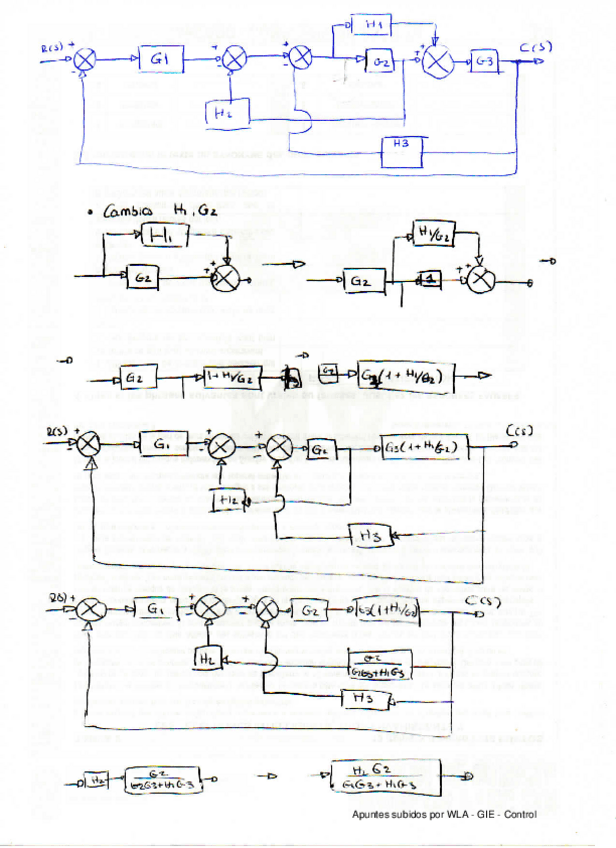 H1
R(S) + - G1 + - + - G2 + + G3 C(S)
H2
H3
• Cambios H1, G2
H1
G2 + +
H1/G2
G2 1 + +
G2 1+H1/G2
G2 G3(1+H1/G2)
R(S) + - G1 + - + - G2 G3(1+H1/G2) C(S)
H2
H3
R(S) + - G1 + - + - G2 G3(1+H1/G2) C(S)
H2 G2
G2G3+H1G3
H3
H2 G2
G2G3+H1G3
H2 G2
G2G3+H1G3
Apuntes subidos por WLA - GIE - Control